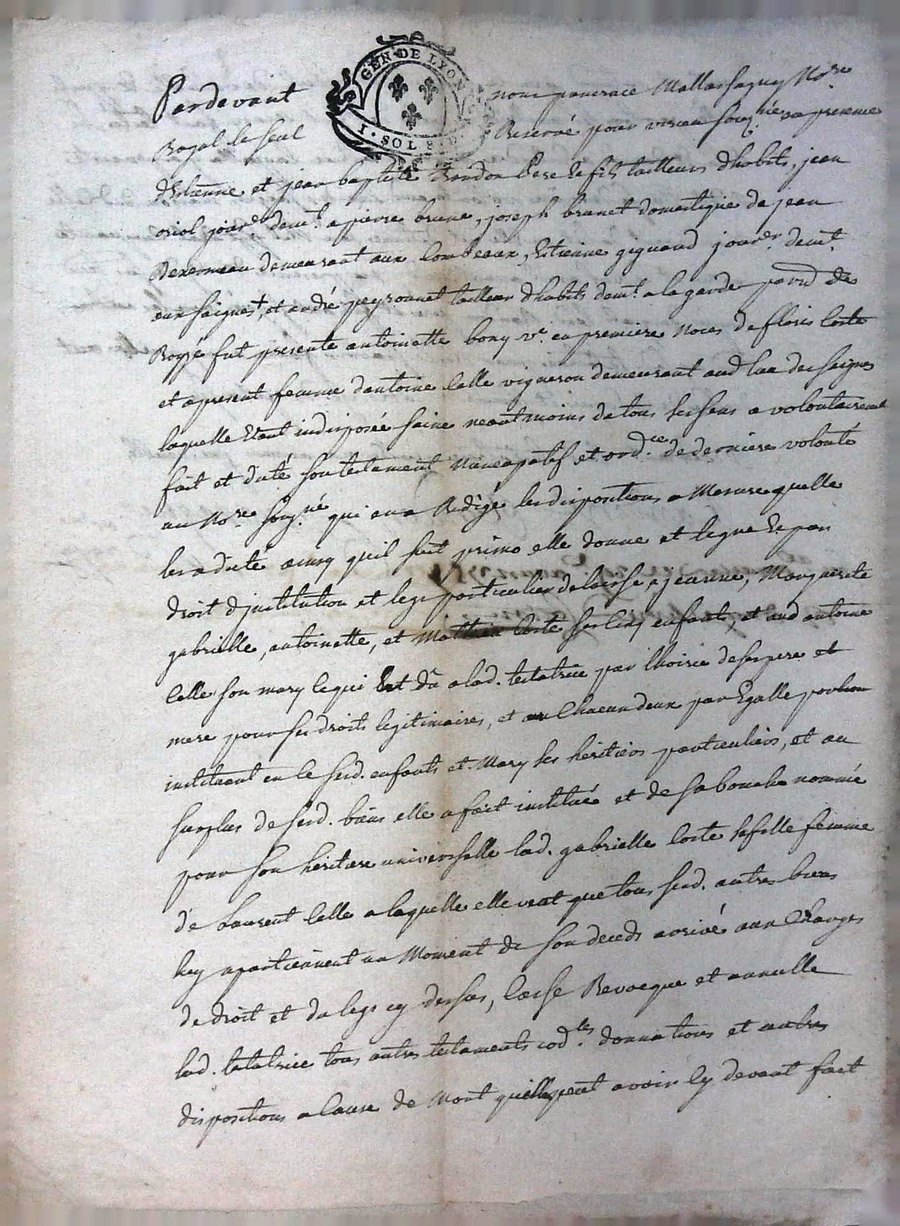 GEN DE LYON
I · SOL 8 D
Pardevant nous pancrace Mallassagny No.re
Royal le seul Reservé pour vireau sousg.né en presence
d'Etienne et jean baptiste Bordon Pere Et fils tailleurs dhabits, jean
oriol jour.r dem.t a pierre brune, joseph brunet domestique de jean
demeurant aux Combeaux, Etienne gignand jour.er dem.t
eux Saignes, et andré peyronnet tailleur dhabits dem.t a la garde par.d de
fut presente antoinette bony v.e en premiere Noces de floris Coste
et apresent femme dantoine Celle vigneron demeurant aud lieu des saignes
laquelle Etant indisposée saine neantmoins de tous ses sens a volontairement
fait et dicté son testament Nuncupatif et ord.ce de derniere volonté
au No.re sousg.né qui en a Redigé les dispositions a Mesure quelle
les a dicté ainsy quil suit primo elle donne et legue Et par
droit d'institution et legs particulier delaisse a jeanne, Marguerite
gabrielle, antoinette, et Mathieu Coste ses Cinq enfants, et aud antoine
Celle son mary Ce qui Est dû a lad. testatrice par lhoirie de ses pere et
mere pour ses droits legitimaires, et a Chacun deux par Egalle portion
instituant en ce sesd. enfants et Mary ses heritiers particuliers, et au
surplus de sesd. biens elle a fait institué et de sa bouche nommée
pour son heritiere universelle lad. gabrielle Coste sa fille femme
de Laurent Celle a laquelle elle veut que tous sesd. autres biens
luy apartiennent au Moment de son deceds arrivé aux Charges
de droit et du legs cy dessus, Casse Revocque et annulle
lad. testatrice tous autres testaments cod.les donnations et autres
dispositions a Cause de Mort quelle peut avoir Cy devant fait